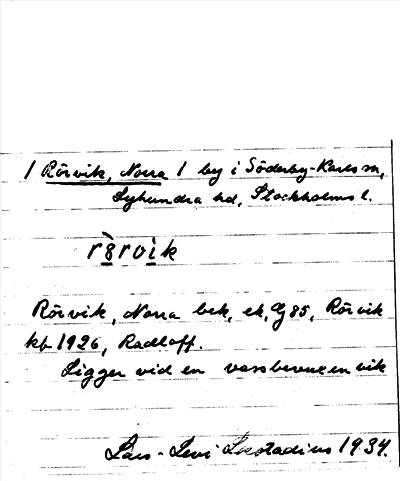 / Rörvik, Norra / by i Söderby-Karls sn,
Lyhundra hd, Stockholms l.
rörvik
Rörvik, Norra bek, ek, Gj 85, Rörvik
kb 1926, Radloff.
Ligger vid en vassbevuxen vik
Lars-Levi Læstadius 1934.